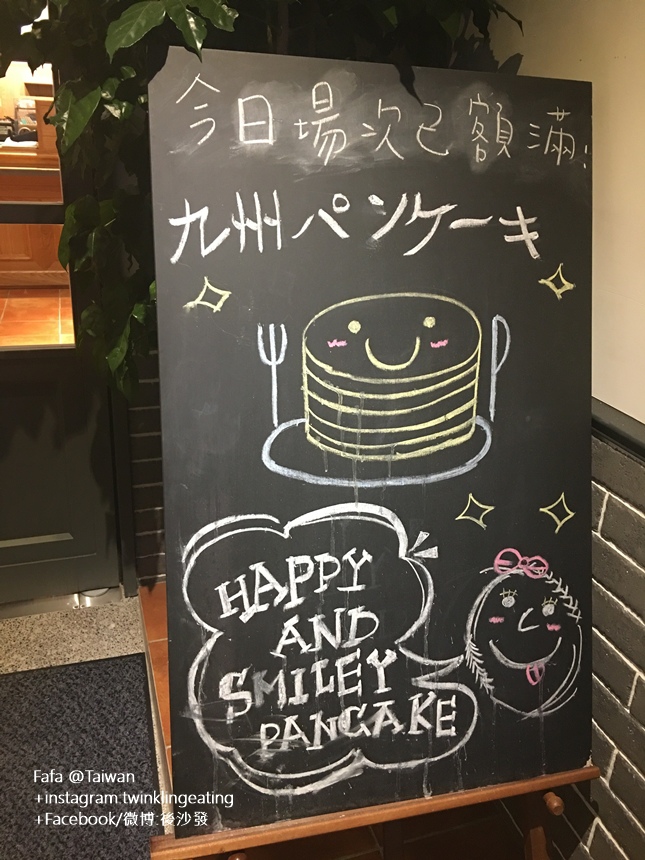 今日場次已額滿!
九州パンケーキ
HAPPY
AND
SMILEY
PANCAKE
Fafa @Taiwan
+instagram:twinklingeating
+Facebook/微博:後沙發